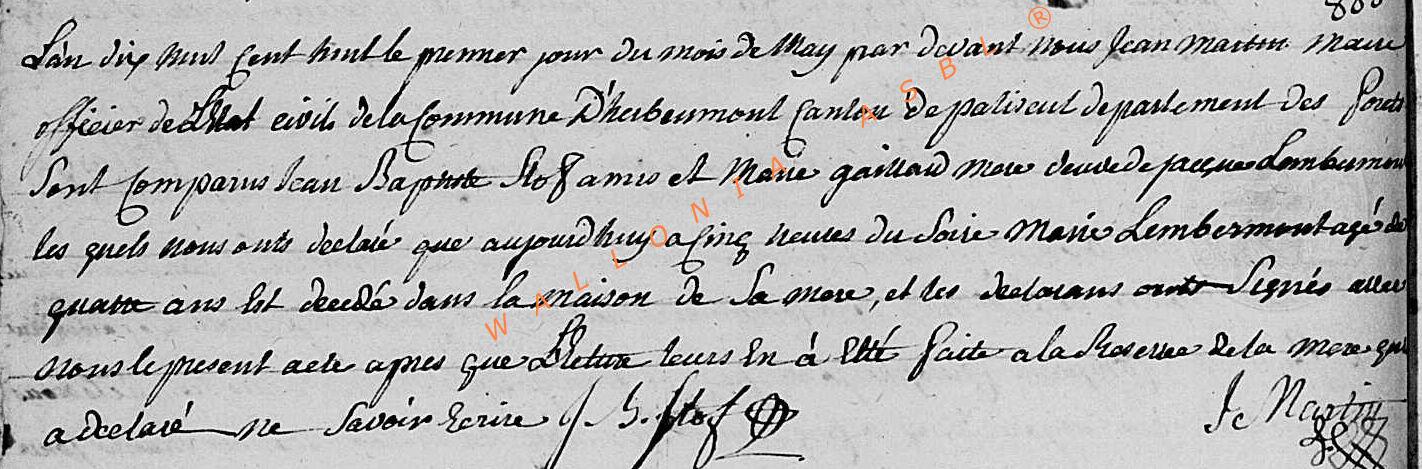 L'an dix huit cent huit le premier jour du mois de May par devant nous Jean Martin Maire
officier de L'Etat civils de la Commune D'herbeumont Canton de paliseul departement des forets
Sont Comparus Jean Baptiste Stof amis et Marie gaillard mere veuve de jacque Lembermont
les quels nous onts declaré que aujourdhuy a Cinq heures du Soire Marie Lembermont agé de
quatre ans Est decedé dans la maison de Sa mere, et les declarans onts Signés avec
nous le present acte apres que Lecture leurs En á Etté faite a la Reserve de la mere qui
a declaré ne Savoir Ecrire J B. Stof
J Martin
WALLONIA ASBL ®